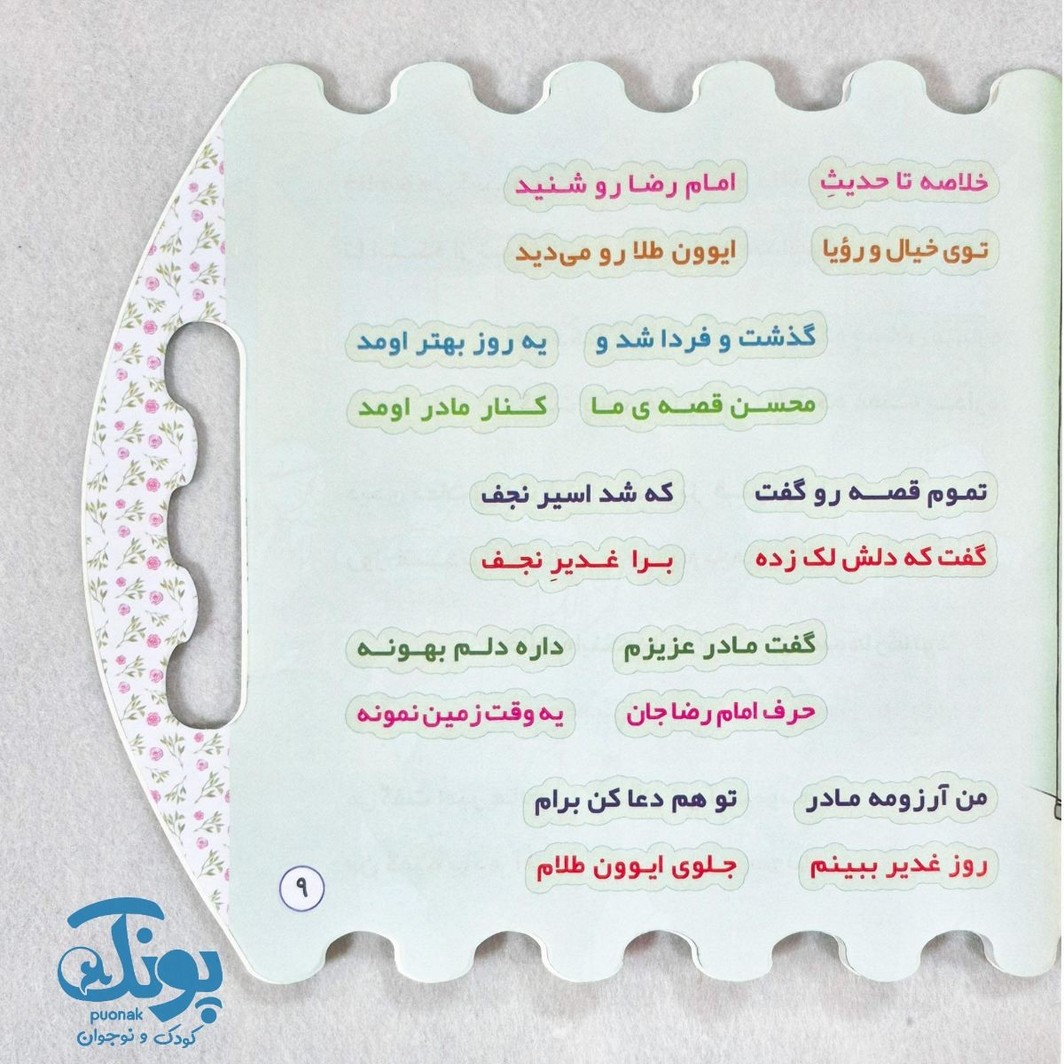 خلاصه تا حدیثِ امام رضا رو شنید
توی خیال و رؤیا ایوون طلا رو می‌دید
گذشت و فردا شد و یه روز بهتر اومد
محسن قصه ی ما کنار مادر اومد
تموم قصه رو گفت که شد اسیر نجف
گفت که دلش لک زده برا غدیرِ نجف
گفت مادر عزیزم داره دلم بهونه
حرف امام رضا جان یه وقت زمین نمونه
من آرزومه مادر تو هم دعا کن برام
روز غدیر ببینم جلوی ایوون طلام
۹
پونک
puonak
کودک و نوجوان